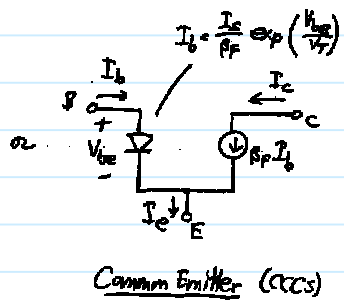 I_b = I_s/β_F exp(V_be/V_T)
I_b
I_c
B
C
+
or
V_be
β_F I_b
-
I_e
E
Common Emitter (CCCS)